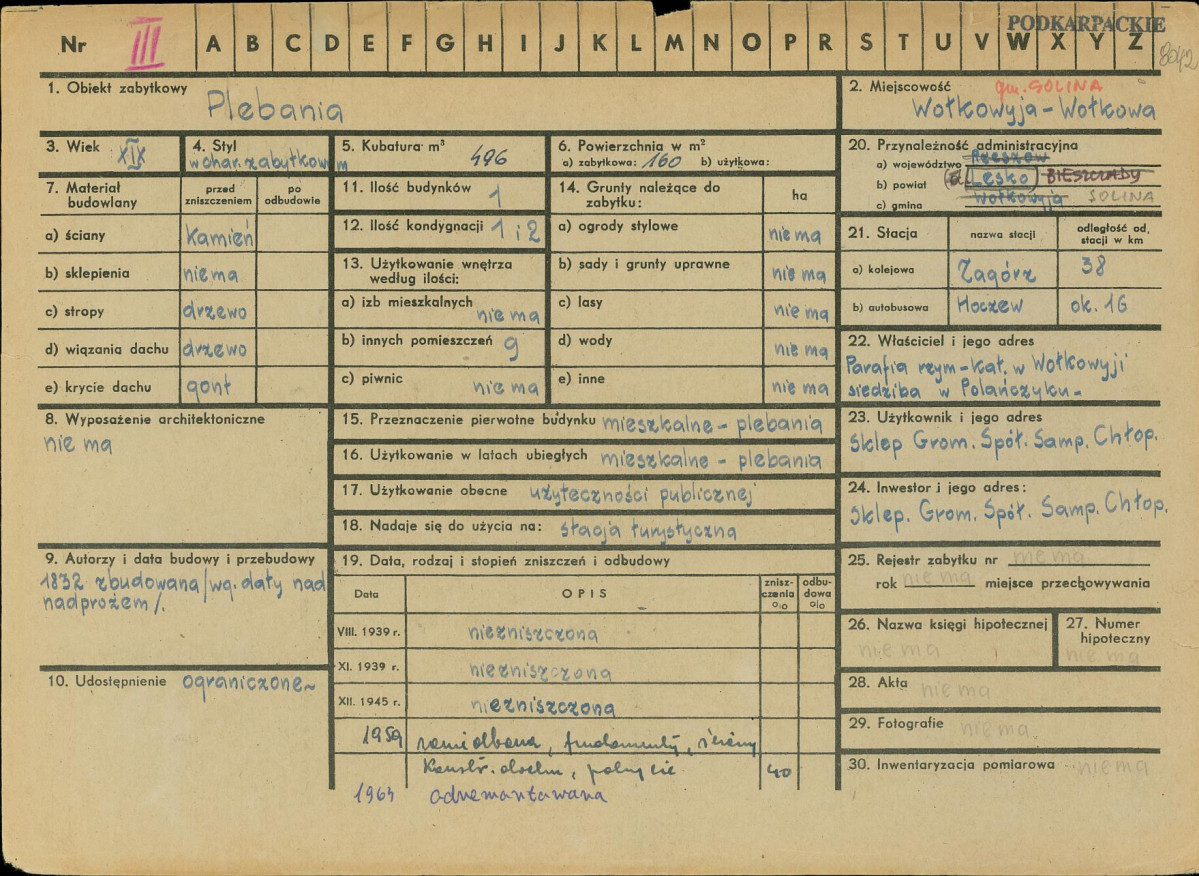 PODKARPACKIE
Nr III A B C D E F G H I J K L M N O P R S T U V W X Y Z
8042
1. Obiekt zabytkowy Plebania
2. Miejscowość gm. SOLINA
Wołkowyja-Wołkowa
3. Wiek XIX
4. Styl w char. zabytkowym
5. Kubatura m³ 496
6. Powierzchnia w m²
a) zabytkowa: 160 b) użytkowa:
20. Przynależność administracyjna
a) województwo Rzeszów
b) powiat Lesko BIESZCZADY
c) gmina Wołkowyja SOLINA
7. Materiał budowlany
przed zniszczeniem
po odbudowie
a) ściany kamień
b) sklepienia nie ma
c) stropy drzewo
d) wiązania dachu drzewo
e) krycie dachu gont
11. Ilość budynków 1
12. Ilość kondygnacji 1 i 2
13. Użytkowanie wnętrza
według ilości:
a) izb mieszkalnych nie ma
b) innych pomieszczeń 9
c) piwnic nie ma
14. Grunty należące do
zabytku: ha
a) ogrody stylowe nie ma
b) sady i grunty uprawne nie ma
c) lasy nie ma
d) wody nie ma
e) inne nie ma
21. Stacja
nazwa stacji
odległość od, stacji w km
a) kolejowa Zagórz 38
b) autobusowa Hoczew ok. 16
22. Właściciel i jego adres
Parafia rzym-kat. w Wołkowyji
siedziba w Polańczyku-
8. Wyposażenie architektoniczne
nie ma
15. Przeznaczenie pierwotne budynku mieszkalne - plebania
16. Użytkowanie w latach ubiegłych mieszkalne - plebania
17. Użytkowanie obecne użyteczności publicznej
18. Nadaje się do użycia na: stacja turystyczna
23. Użytkownik i jego adres
Sklep Grom. Spół. Samp. Chłop.
24. Inwestor i jego adres:
Sklep. Grom. Spół. Samp. Chłop.
9. Autorzy i data budowy i przebudowy
1832 zbudowana /wg. daty nad
nadprożem/.
10. Udostępnienie ograniczone~
19. Data, rodzaj i stopień zniszczeń i odbudowy
Data OPIS znisz-czenia o/o odbu-dowa o/o
VIII. 1939 r. niezniszczona
XI. 1939 r. niezniszczona
XII. 1945 r. niezniszczona
1959 zaniedbana, fundamenty, ściany
konstr. dachu, pokrycie 40
1964 odremontowana
25. Rejestr zabytku nr nie ma
rok nie ma miejsce przechowywania
26. Nazwa księgi hipotecznej
nie ma
27. Numer
hipoteczny
nie ma
28. Akta nie ma
29. Fotografie nie ma.
30. Inwentaryzacja pomiarowa nie ma